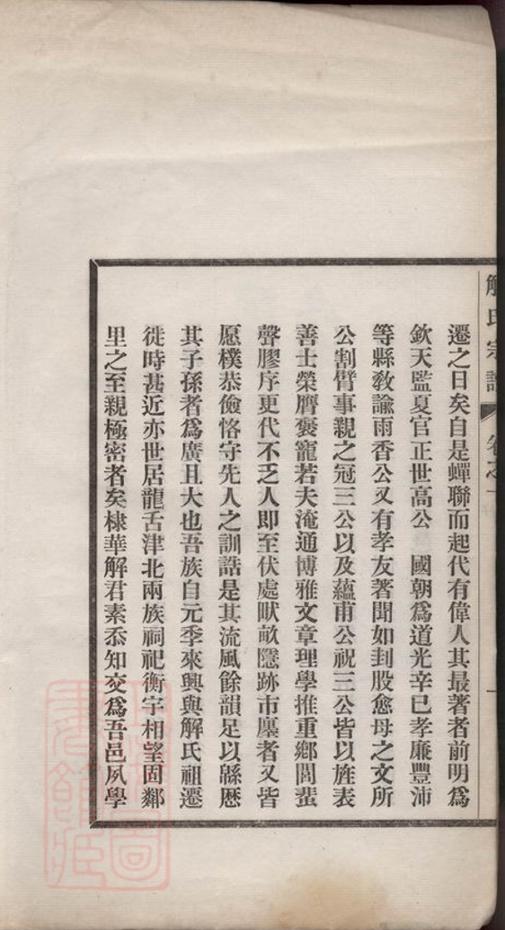 解氏宗譜 卷之一
遷之日矣自是蟬聯而起代有偉人其最著者前明爲
欽天監夏官正世高公 國朝爲道光辛巳孝廉豐沛
等縣教諭雨香公又有孝友著聞如刲股愈母之文所
公割臂事親之冠三公以及蘊甫公祝三公皆以旌表
善士榮膺褒寵若夫淹通博雅文章理學推重鄉閭蜚
聲膠序更代不乏人即至伏處畎畝隱跡市廛者又皆
愿樸恭儉恪守先人之訓誥是其流風餘韻足以緜歷
其子孫者爲廣且大也吾族自元季來興與解氏祖遷
徙時甚近亦世居龍舌津北兩族祠祀衡宇相望固鄰
里之至親極密者矣棣華解君素忝知交爲吾邑夙學